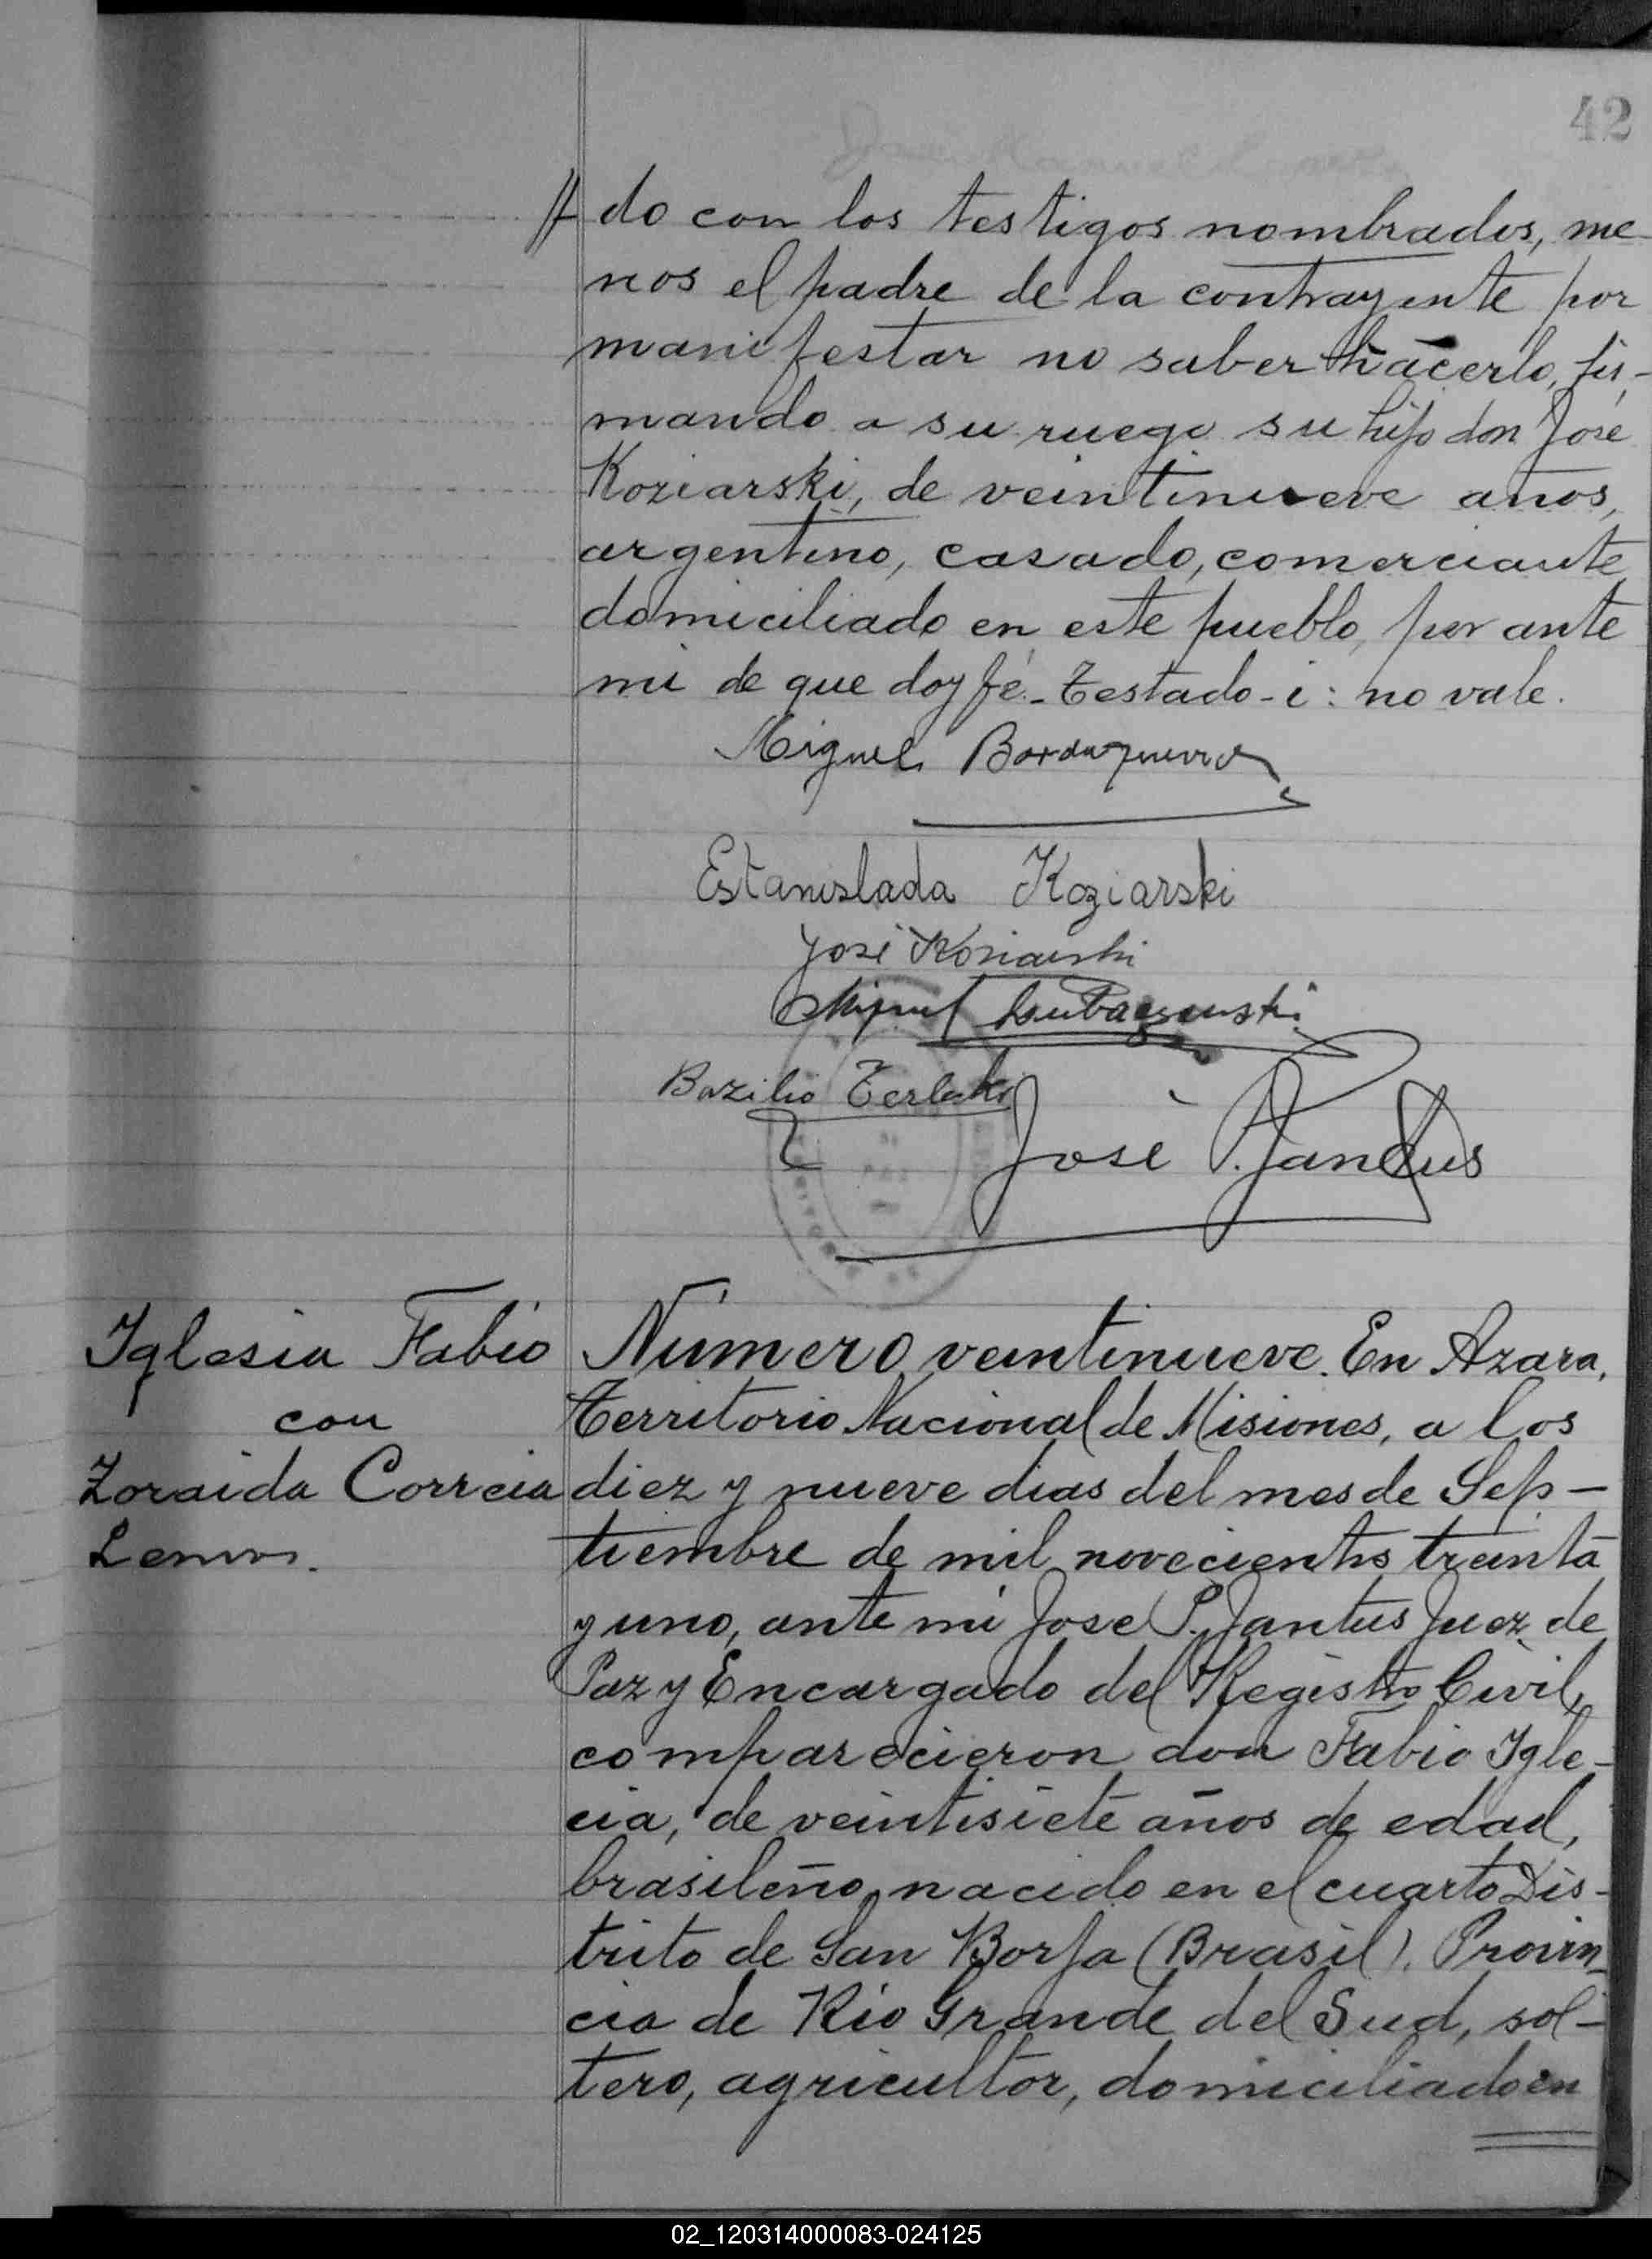 42
do con los testigos nombrados, me-
nos el padre de la contrayente por
manifestar no saber hacerlo, fir-
mando a su ruego su hijo don José
Koziarski, de veintinueve años,
argentino, casado, comerciante
domiciliado en este pueblo, por ante
mi de que doy fé.- Testado - i : no vale.
Miguel
Estanislada Koziarski
José Koziarski
Miguel
Bazilio Terlecki
José P. Jantus
Iglesia Fabio
con
Zoraida Correia
Lemos.
Número veintinueve. En Azara,
Territorio Nacional de Misiones, a los
diez y nueve dias del mes de Sep-
tiembre de mil novecientos treinta
y uno, ante mi José P. Jantus Juez de
Paz y Encargado del Registro Civil,
comparecieron don Fabio Igle-
cia, de veintisiete años de edad,
brasileño, nacido en el cuarto Dis-
trito de San Borja (Brasil). Provin-
cia de Rio Grande del Sud, sol-
tero, agricultor, domiciliado en
02_120314000083-024125